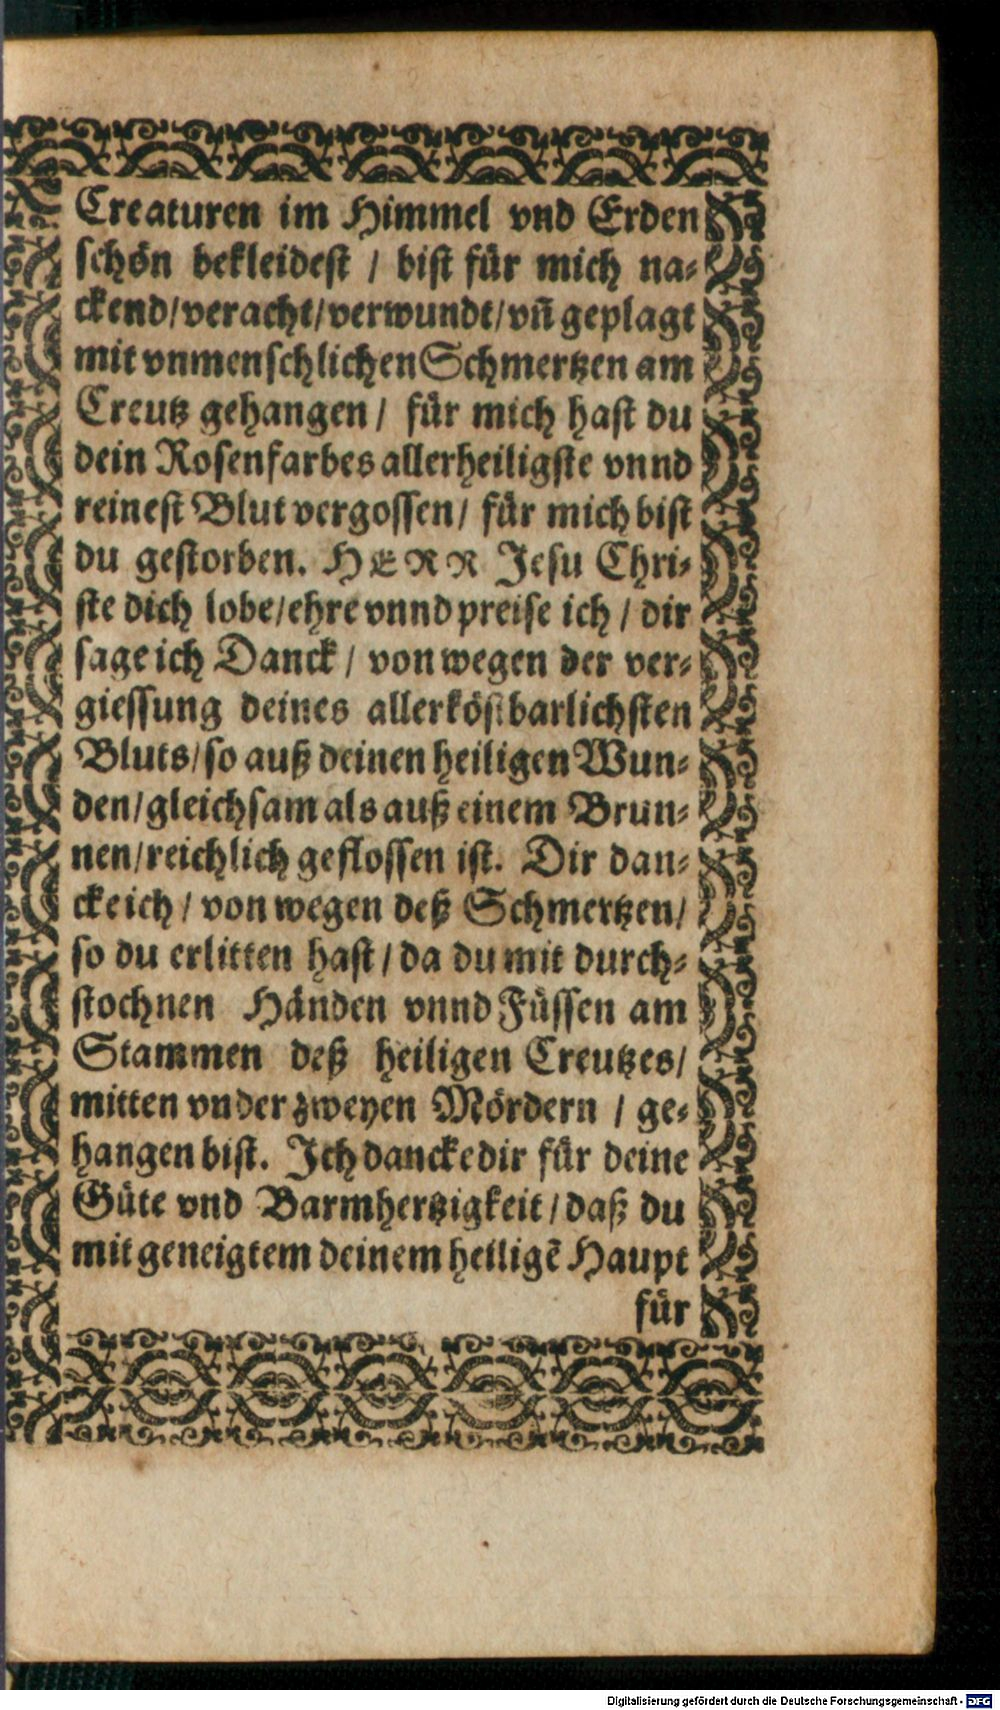 Creaturen im Himmel vnd Erden
schön bekleidest / bist für mich na-
ckend/veracht/verwundt/vñ geplagt
mit vnmenschlichen Schmertzen am
Creutz gehangen / für mich hast du
dein Rosenfarbes allerheiligste vnnd
reinest Blut vergossen / für mich bist
du gestorben. HERR Jesu Chri-
ste dich lobe/ehre vnnd preise ich / dir
sage ich Danck / von wegen der ver-
giessung deines allerköstbarlichsten
Bluts/so auß deinen heiligen Wun-
den/gleichsam als auß einem Brun-
nen/reichlich geflossen ist. Dir dan-
cke ich / von wegen deß Schmertzen/
so du erlitten hast / da du mit durch-
stochnen Händen vnnd Füssen am
Stammen deß heiligen Creutzes/
mitten vnder zweyen Mördern / ge-
hangen bist. Ich dancke dir für deine
Güte vnd Barmhertzigkeit/daß du
mit geneigtem deinem heiligẽ Haupt
für
Digitalisierung gefördert durch die Deutsche Forschungsgemeinschaft - DFG